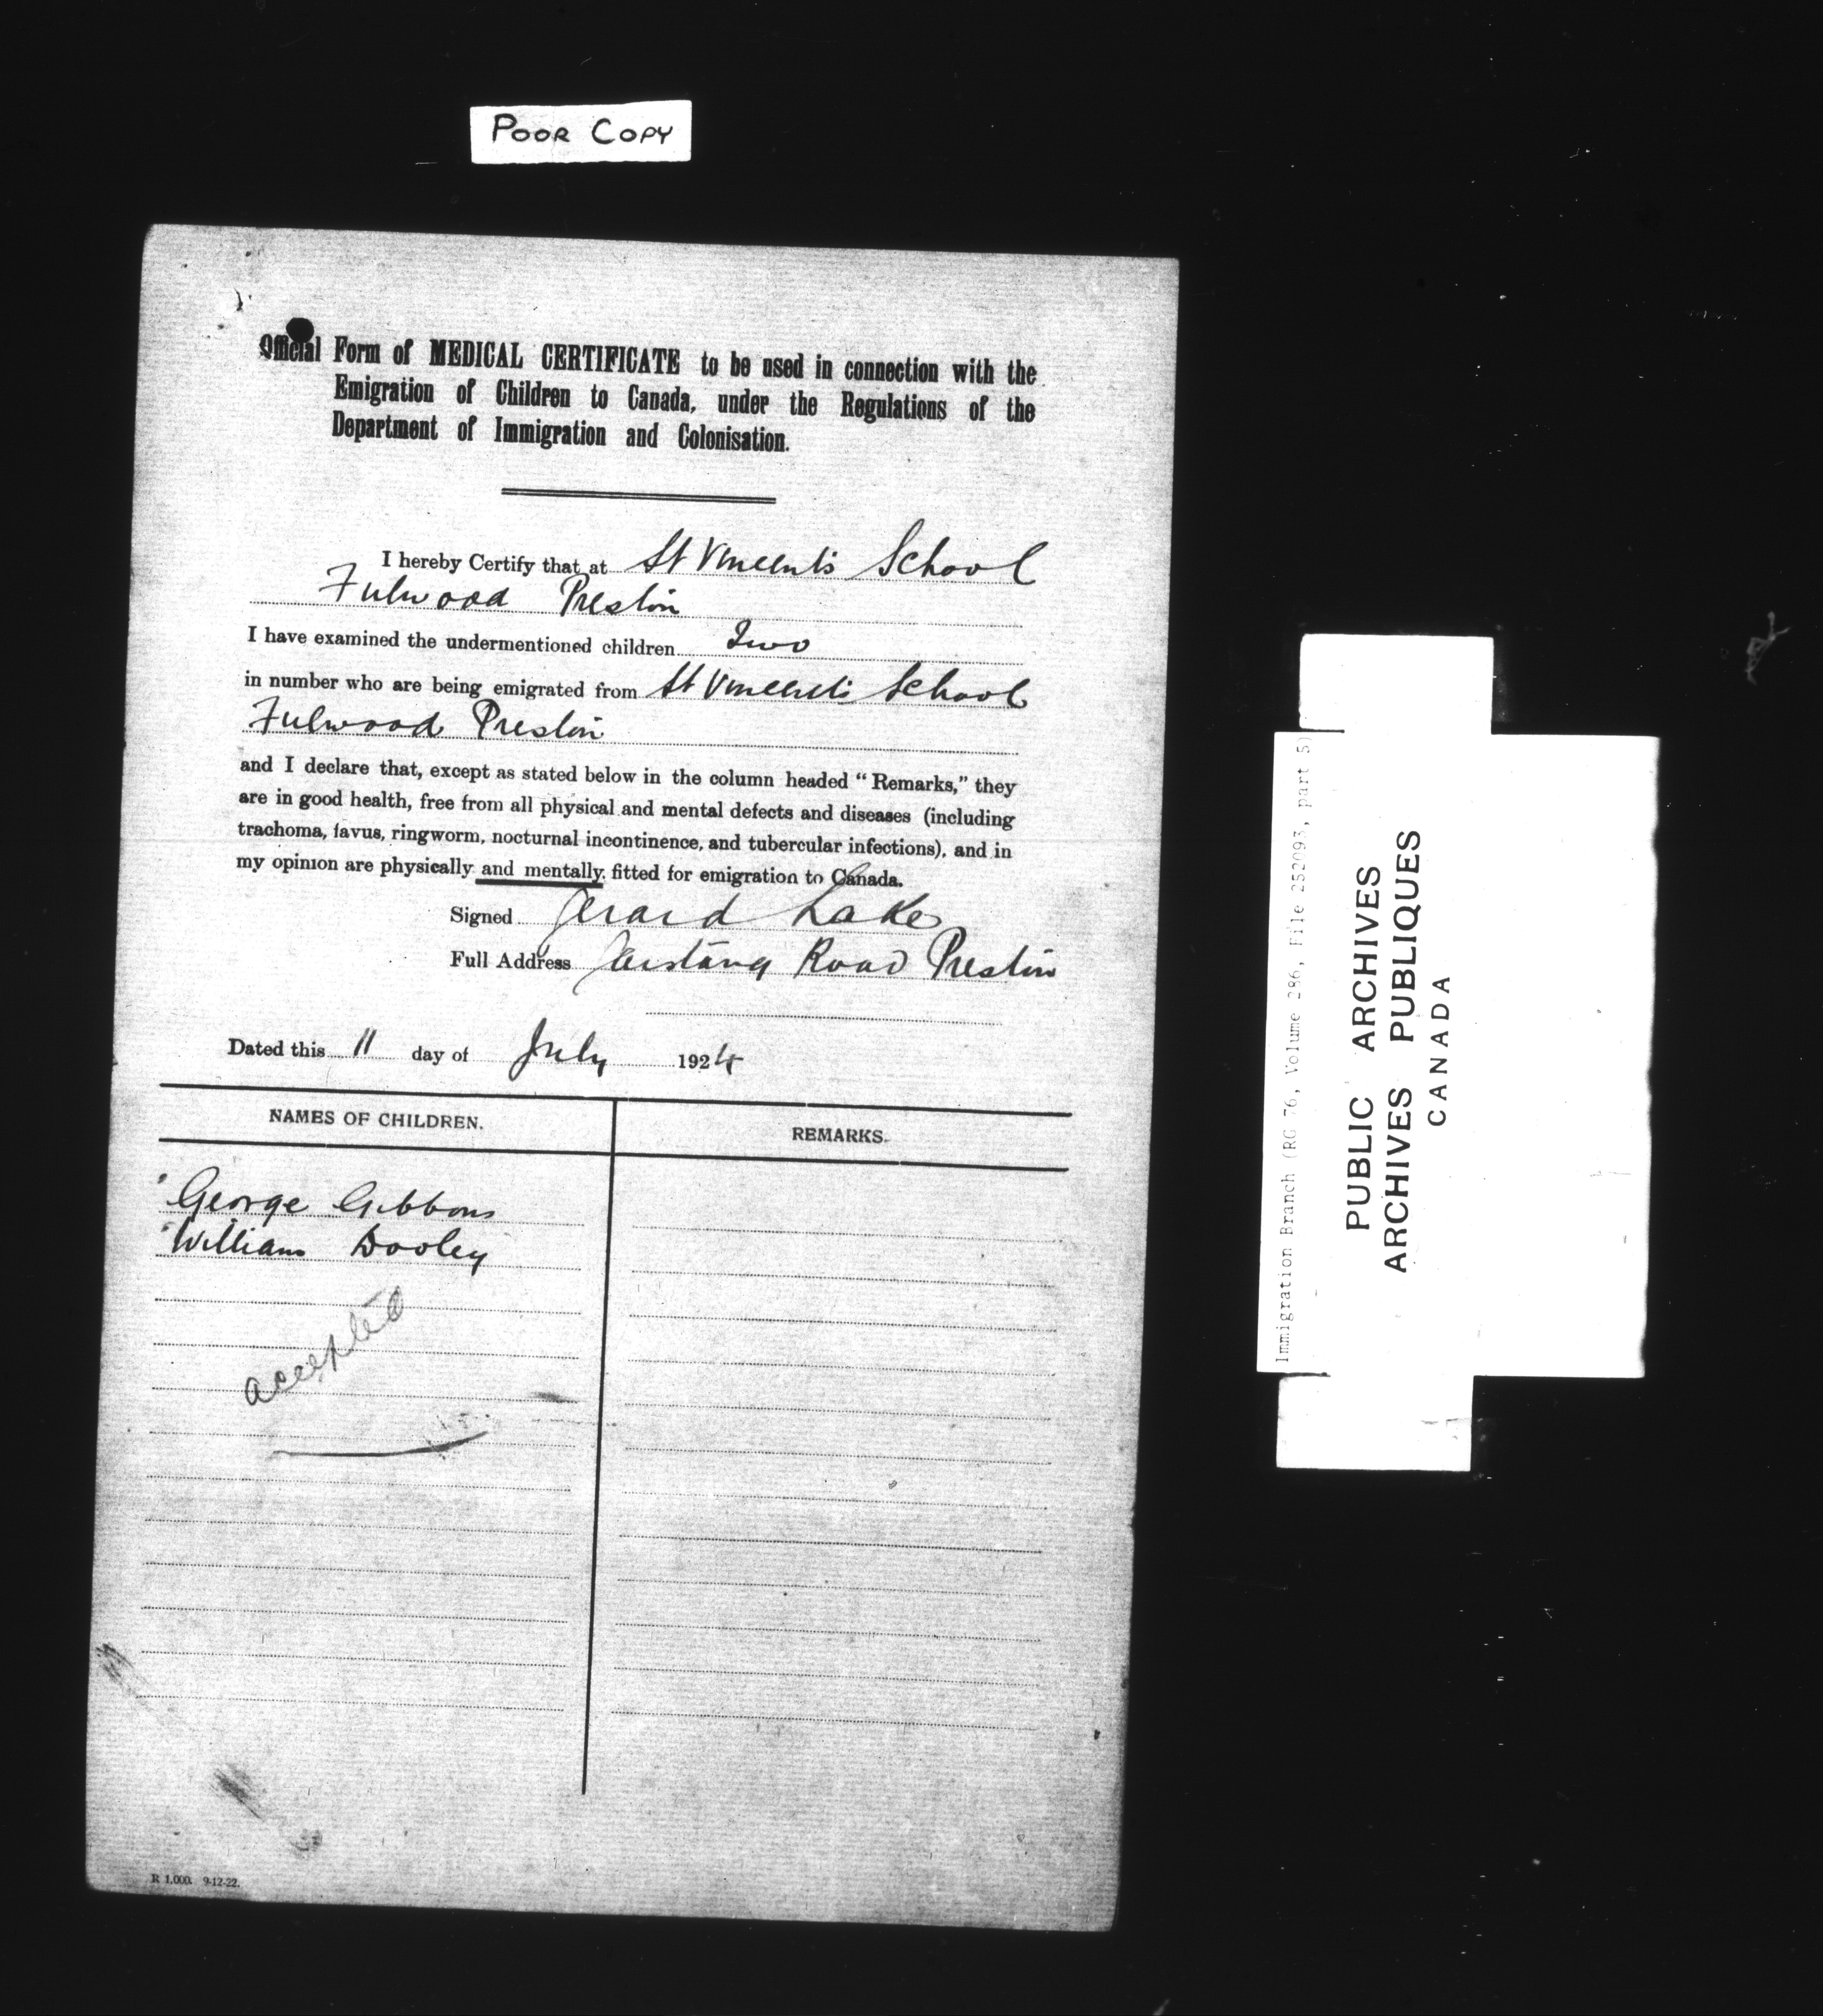 POOR COPY
Official Form of MEDICAL CERTIFICATE to be used in connection with the
Emigration of Children to Canada, under the Regulations of the
Department of Immigration and Colonisation.
I hereby Certify that at St Vincent's School
Fulwood Preston
I have examined the undermentioned children Two
in number who are being emigrated from St Vincent's School
Fulwood Preston
and I declare that, except as stated below in the column headed "Remarks," they
are in good health, free from all physical and mental defects and diseases (including
trachoma, favus, ringworm, nocturnal incontinence, and tubercular infections), and in
my opinion are physically and mentally fitted for emigration to Canada.
Signed Gerard Lakes
Full Address Garstang Road Preston
Dated this 11 day of July 1924
NAMES OF CHILDREN.
REMARKS.
George Gibbons
William Dooley
accepted
R 1,000. 9-12-22.
Immigration Branch (RG 76, Volume 286, File 252093, part 5)
PUBLIC ARCHIVES
ARCHIVES PUBLIQUES
CANADA